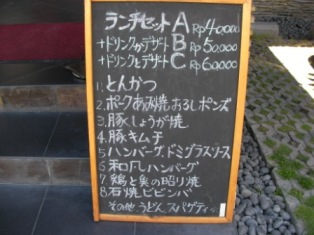 ランチセット A Rp40,000
+ドリンクorデザート B Rp50,000
+ドリンクとデザート C Rp60,000
1.とんかつ
2.ポークあみ焼おろしポンズ
3.豚しょうが焼
4.豚キムチ
5.ハンバーグ.ドミグラスソース
6.和風ハンバーグ
7.鶏と魚の照り焼
8.石焼ビビンバ
その他.うどん.スパゲティ